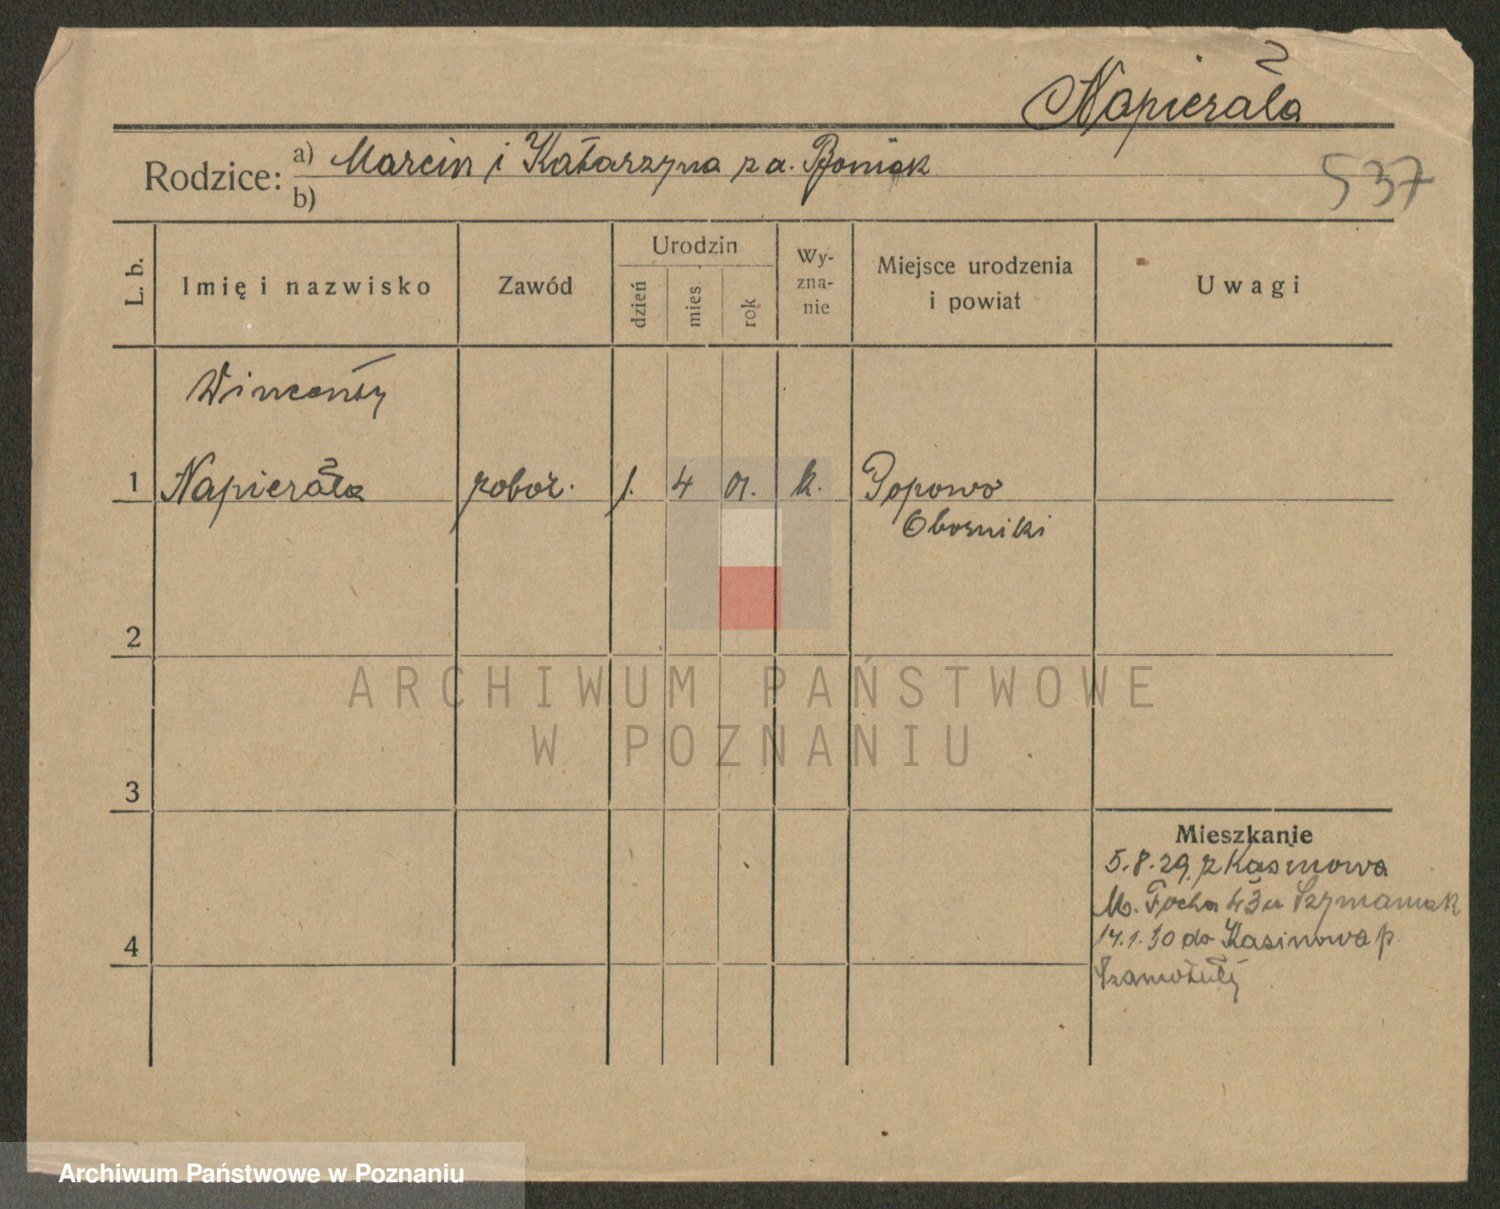 Napierała
Rodzice: a) Marcin i Katarzyna z d.
b)
537
L. b.
Imię i nazwisko
Zawód
Urodzin
dzień
mies
rok
Wy-
zna-
nie
Miejsce urodzenia
i powiat
Uwagi
Wincenty
1 Napierała robot. 1. 4 01. k. Popowo
Oborniki
2
ARCHIWUM PAŃSTWOWE
W POZNANIU
3
Mieszkanie
5.8.29. z Kasinowa
M. Focha 43 u Szymaniak
4
14.1.30 do Kasinowa p.
Szamotuły
Archiwum Państwowe w Poznaniu